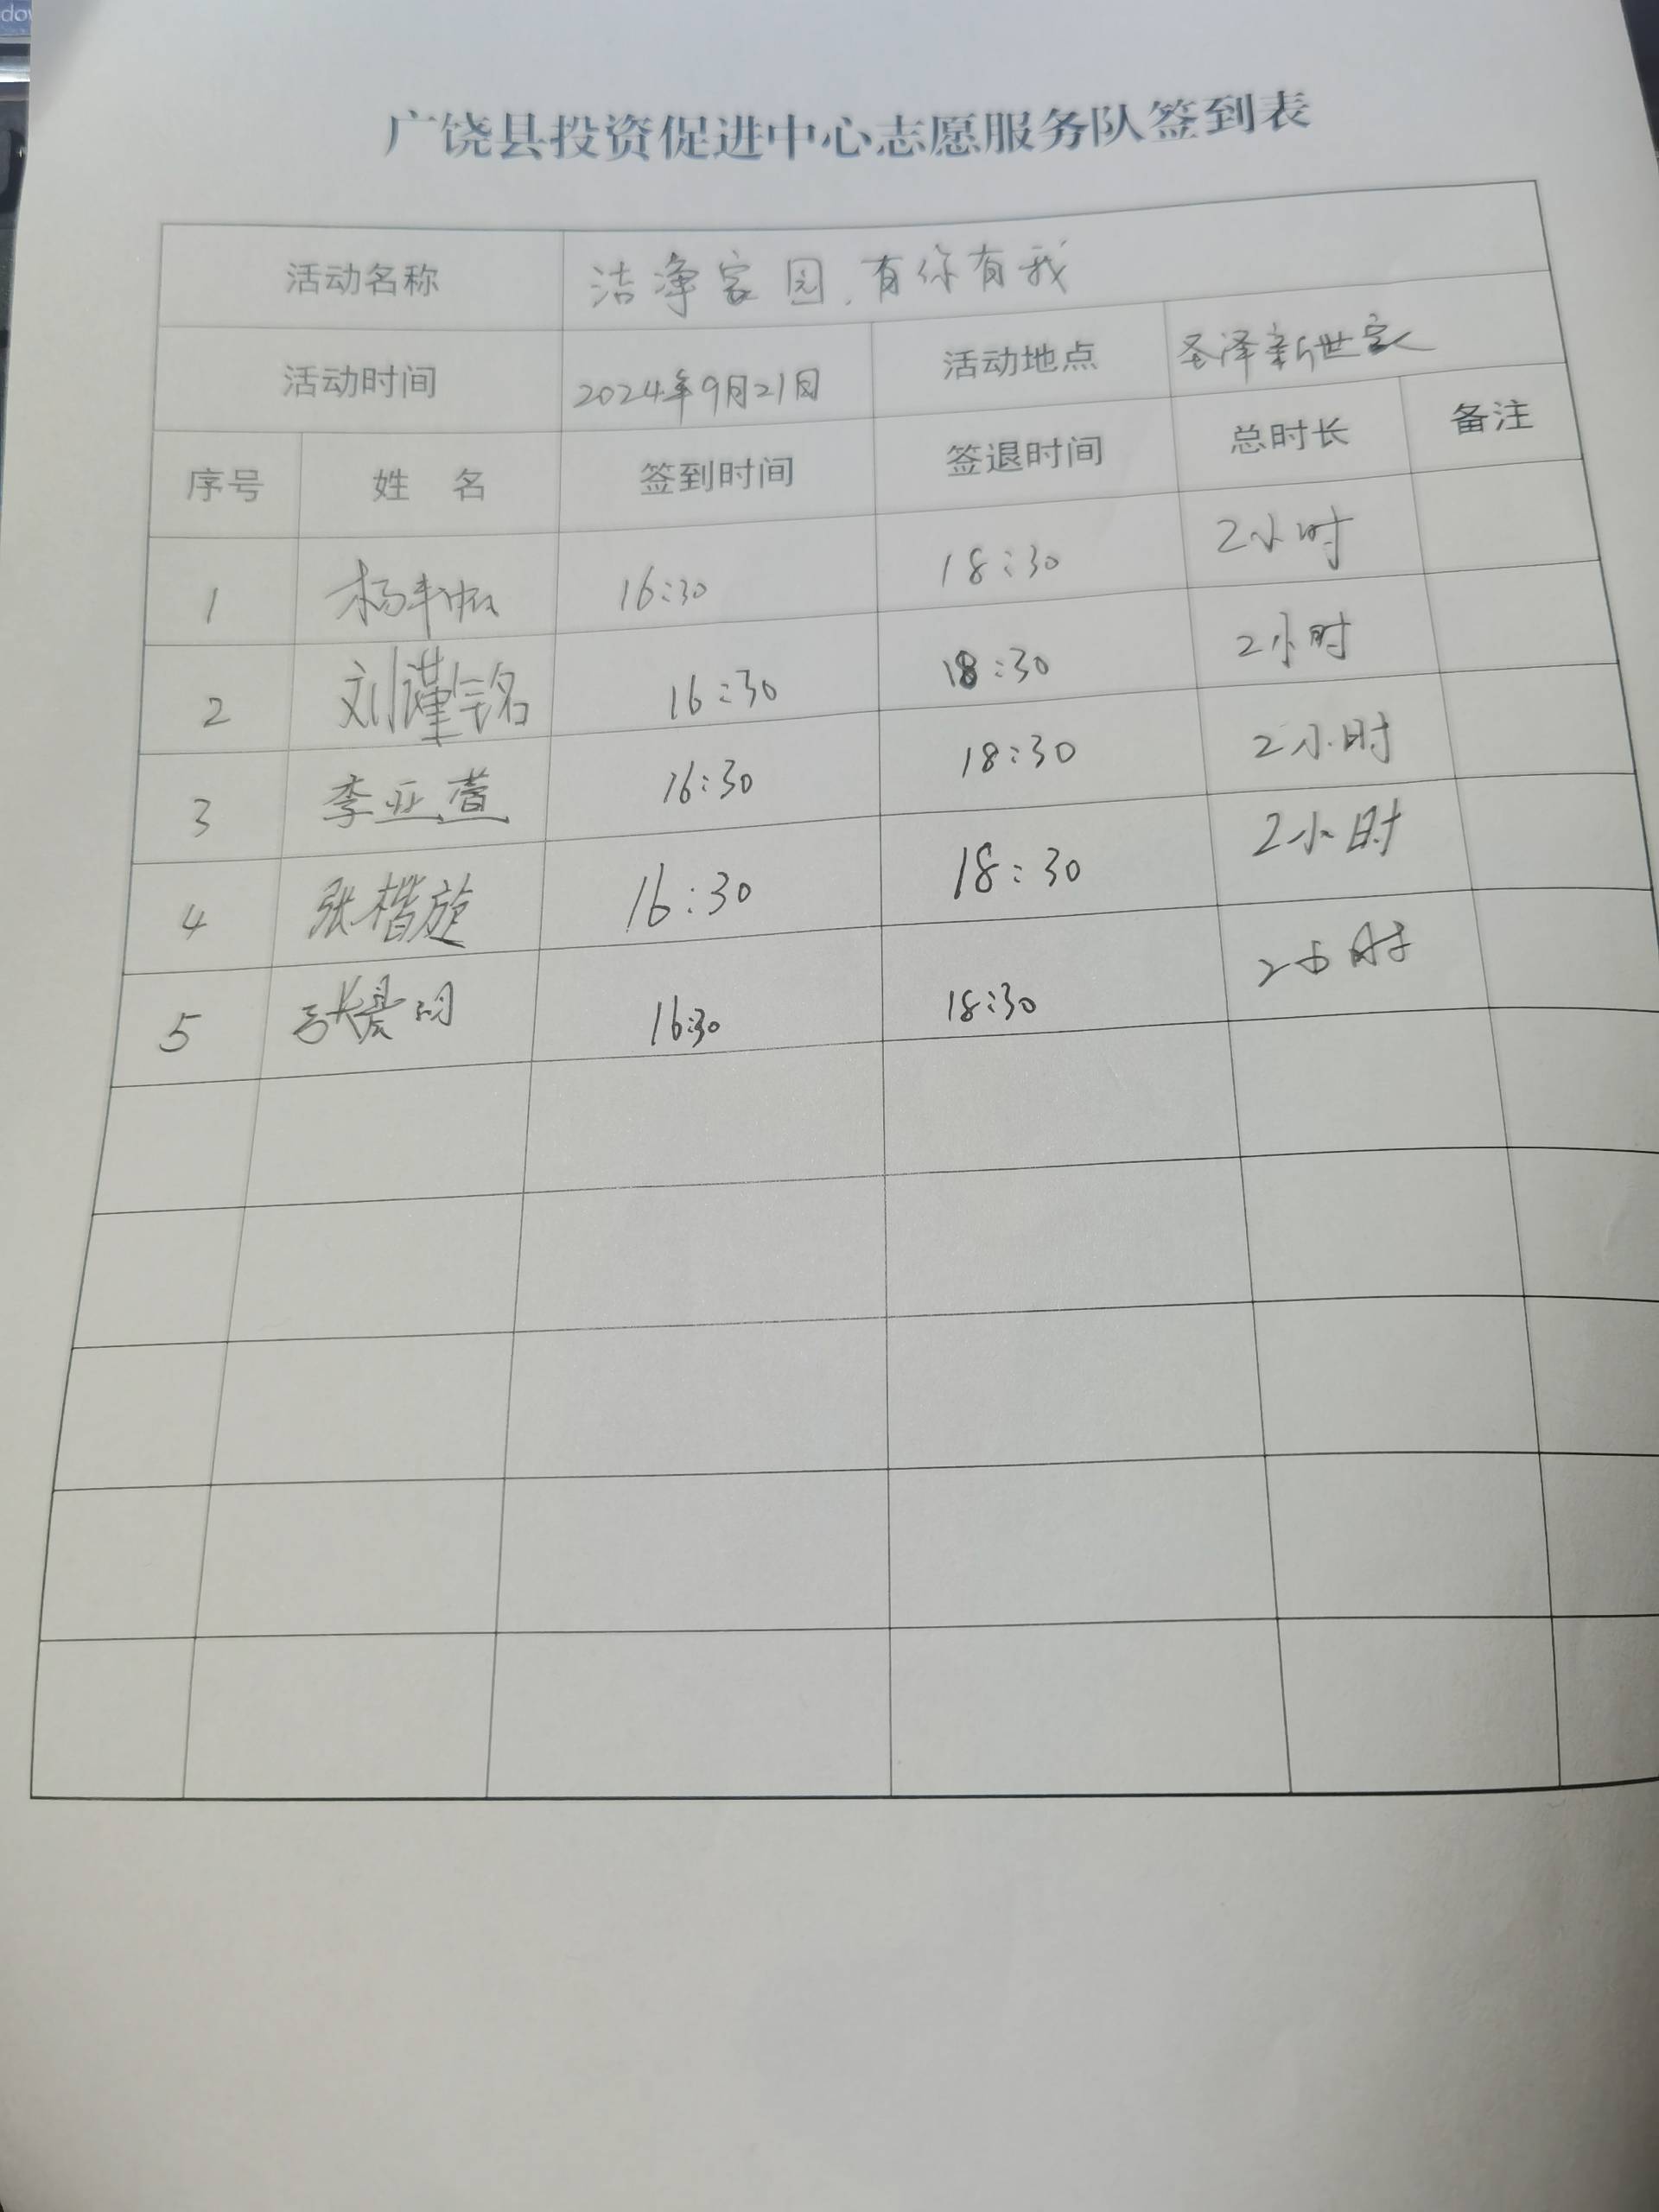 广饶县投资促进中心志愿服务队签到表
活动名称 洁净家园，有你有我
活动时间 2024年9月21日 活动地点 圣泽新世家
序号 姓 名 签到时间 签退时间 总时长 备注
1 16:30 18:30 2小时
2 刘谨铭 16:30 18:30 2小时
3 李亚萱 16:30 18:30 2小时
4 张楷旋 16:30 18:30 2小时
5 16:30 18:30 2小时